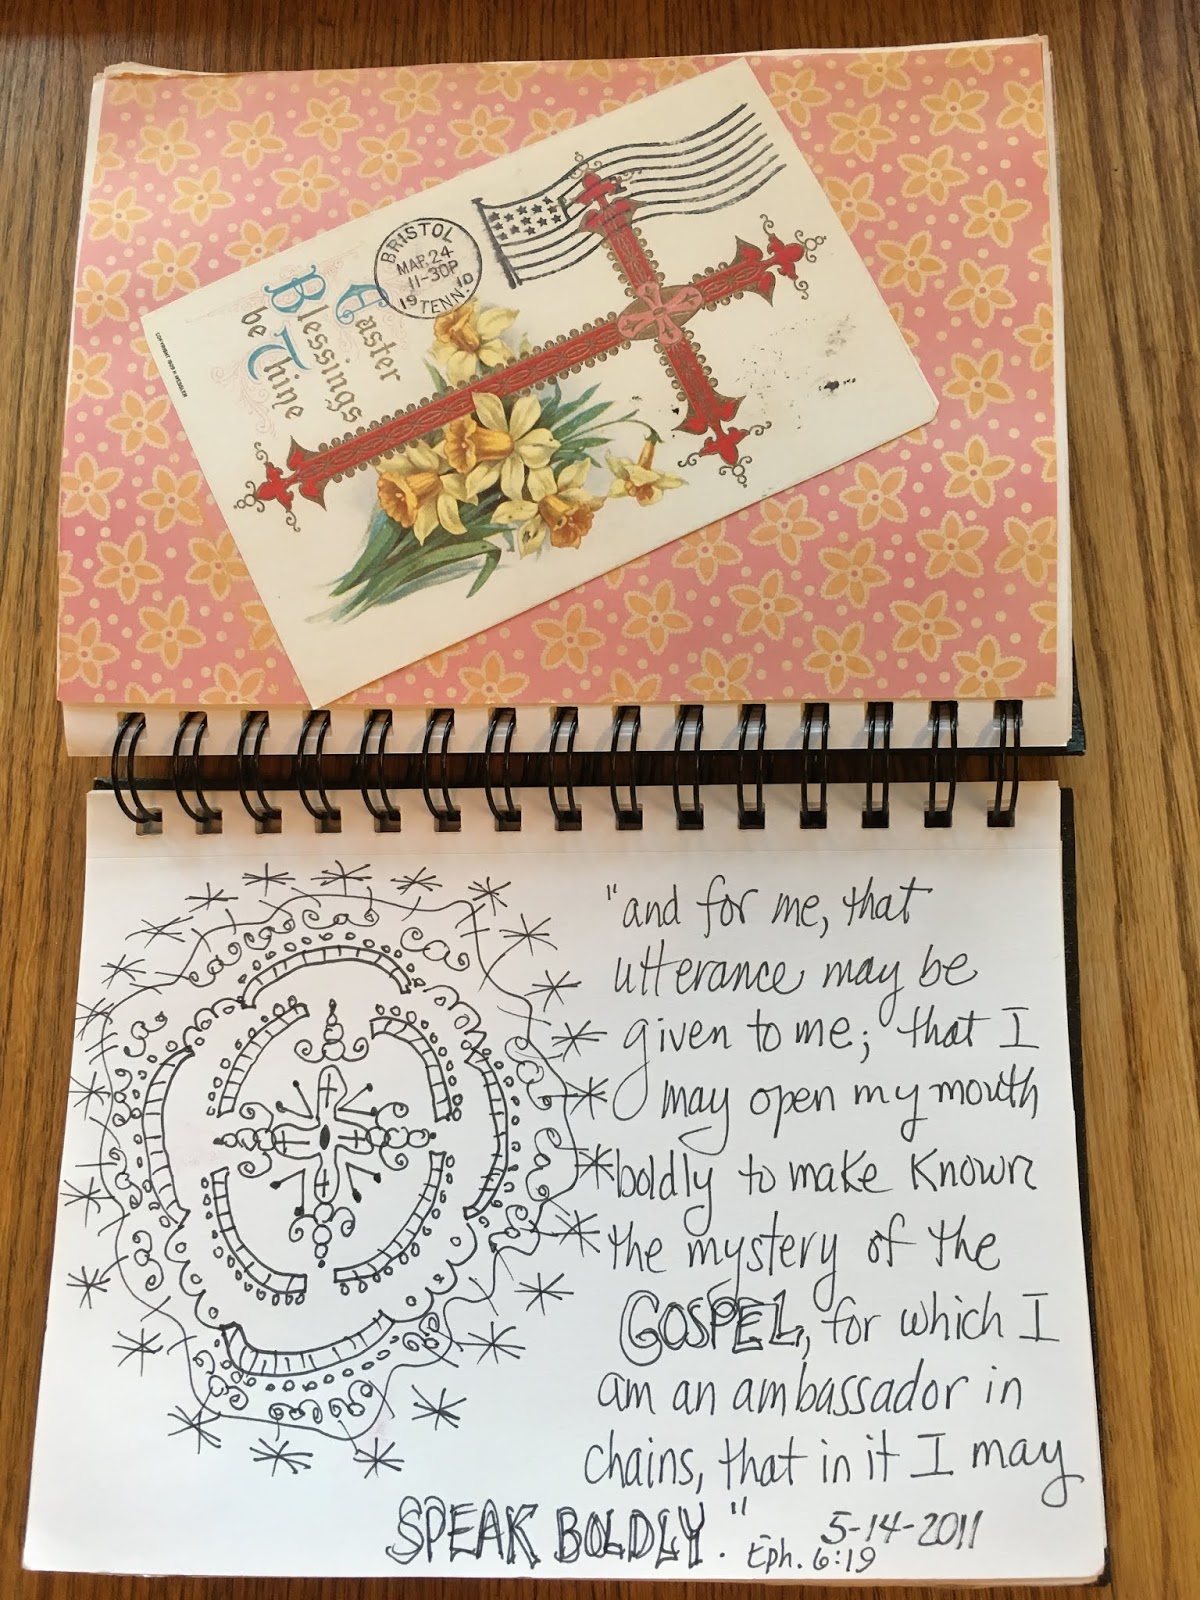 BRISTOL
MAR. 24
11-30P
1910
TENN.
Easter
Blessings
be Thine
COPYRIGHT 1909 H WESSLER
"and for me, that
utterance may be
given to me; that I
may open my mouth
boldly to make known
the mystery of the
GOSPEL, for which I
am an ambassador in
chains, that in it I may
SPEAK BOLDLY."
Eph. 6:19
5-14-2011